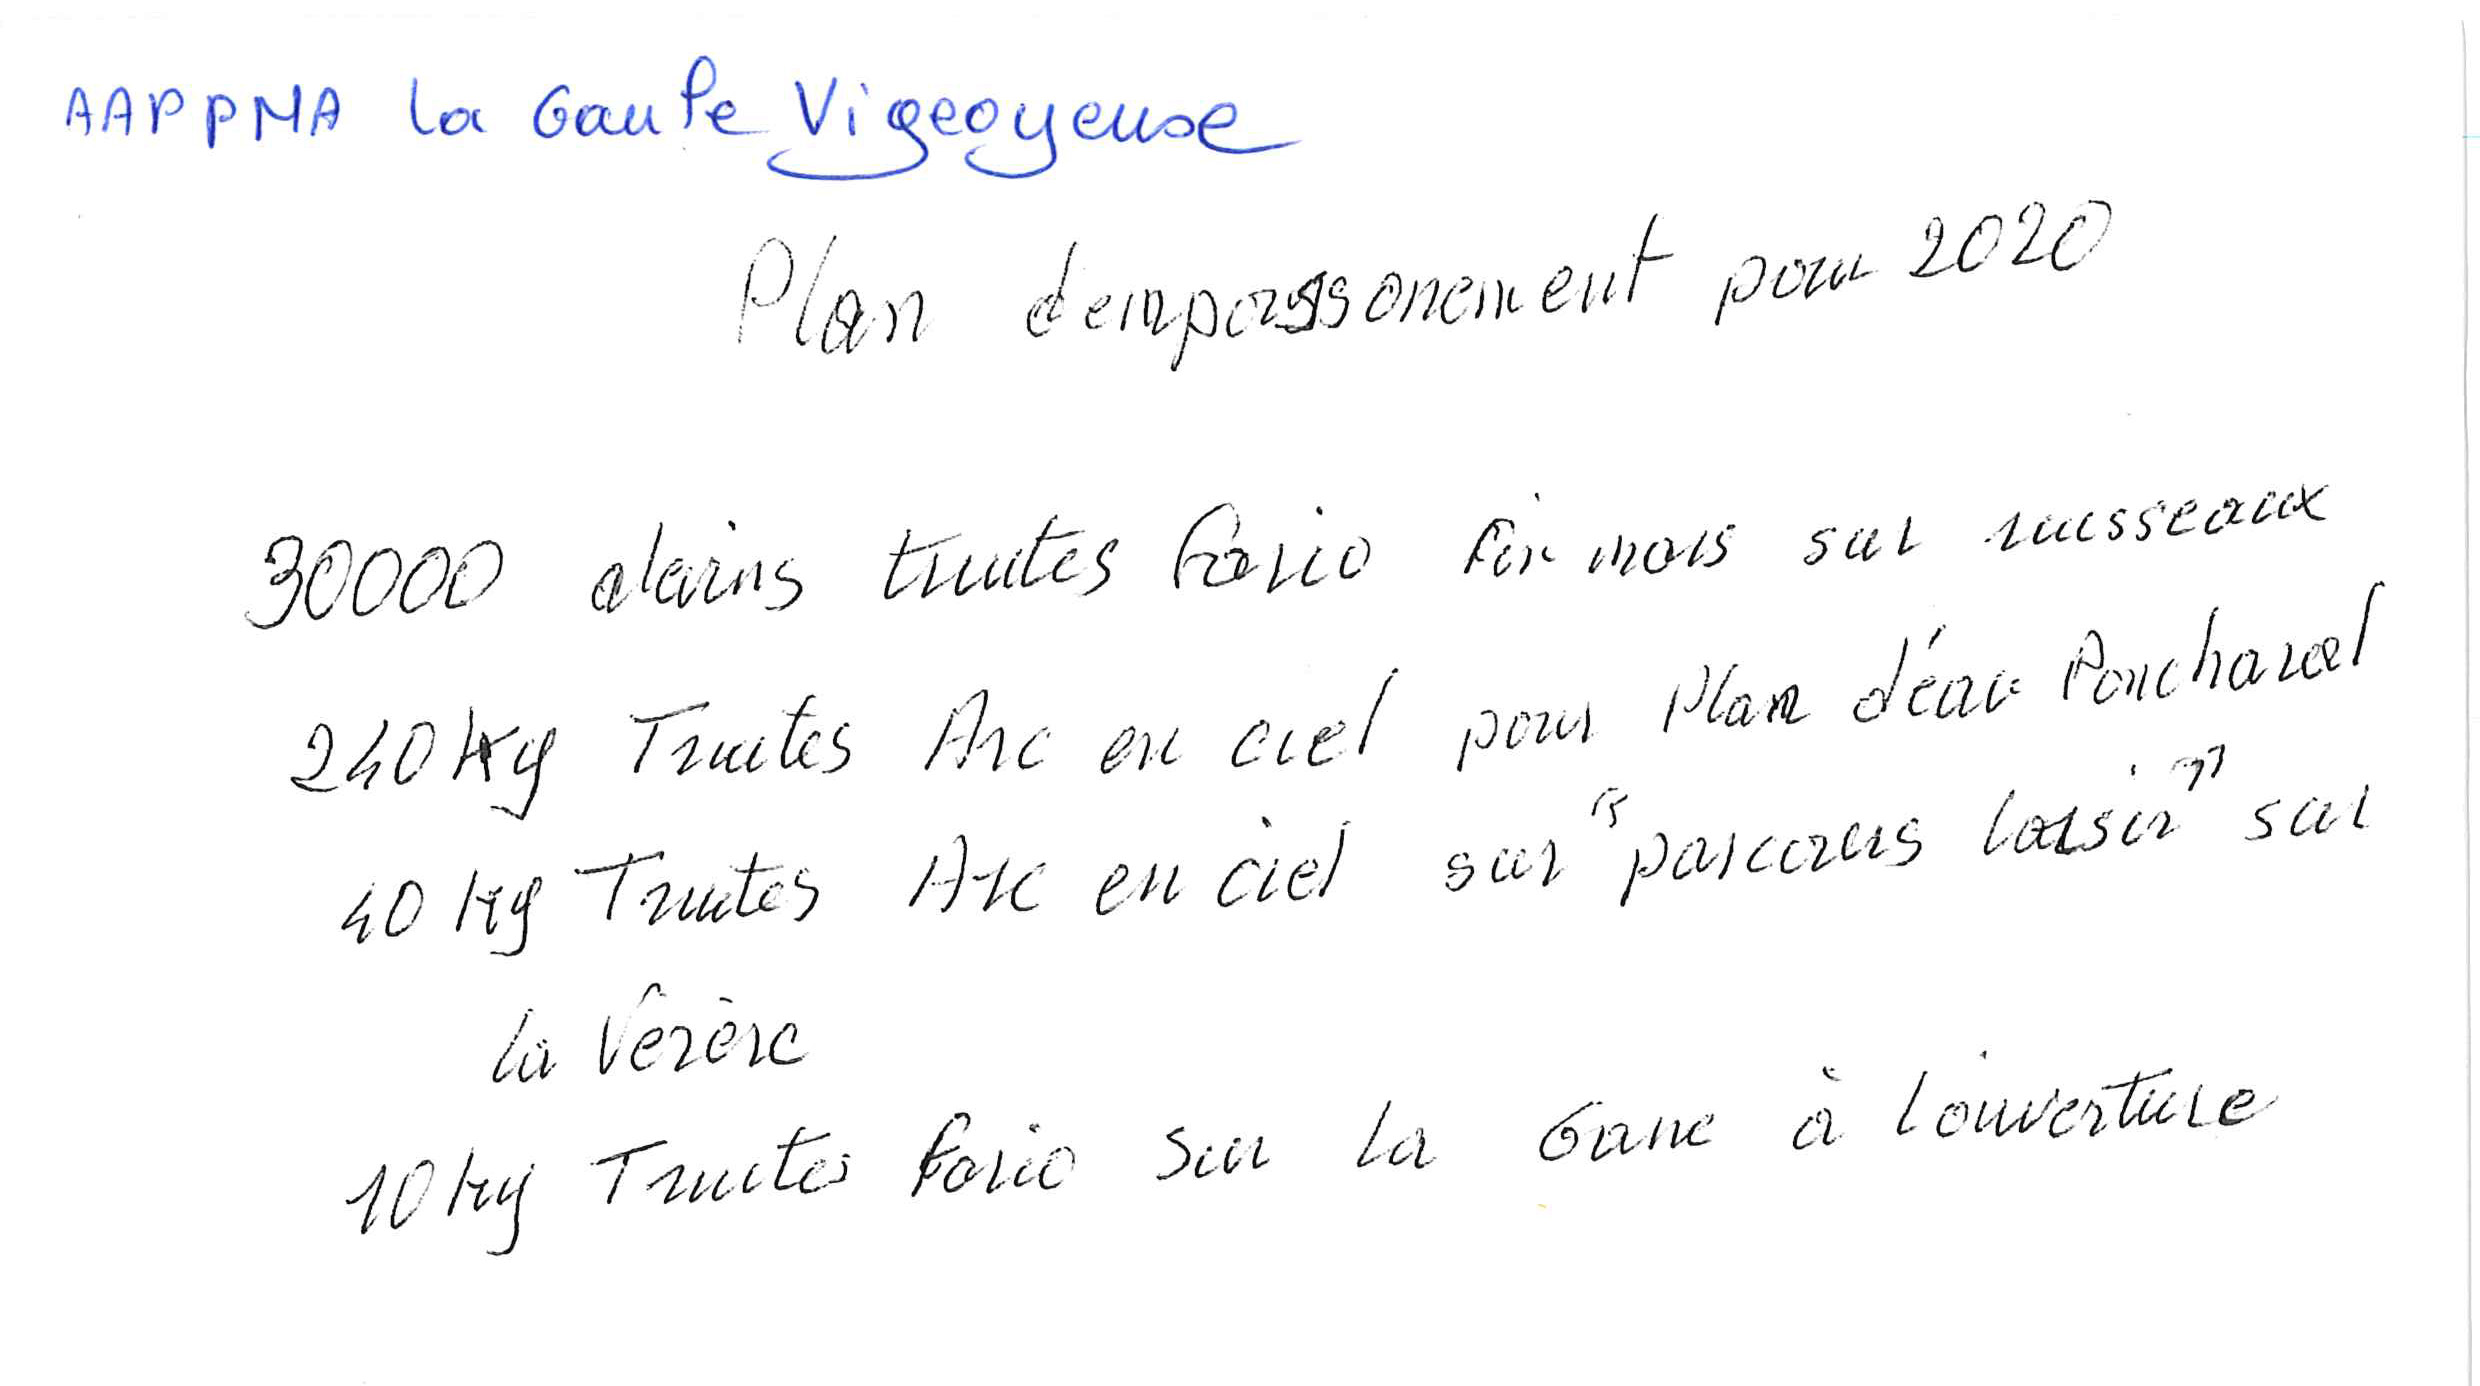 AAPPMA la Gaule Vigeoyeuse
Plan d'empoissonement pour 2020
30000 alevins truites fario fin mars sur ruisseaux
240 kg Truites Arc en ciel pour Plan d'eau Poncharal
40 kg Truites Arc en ciel sur "parcours loisir" sur
la Vézère
10 kg Truites fario sur la Gane à l'ouverture